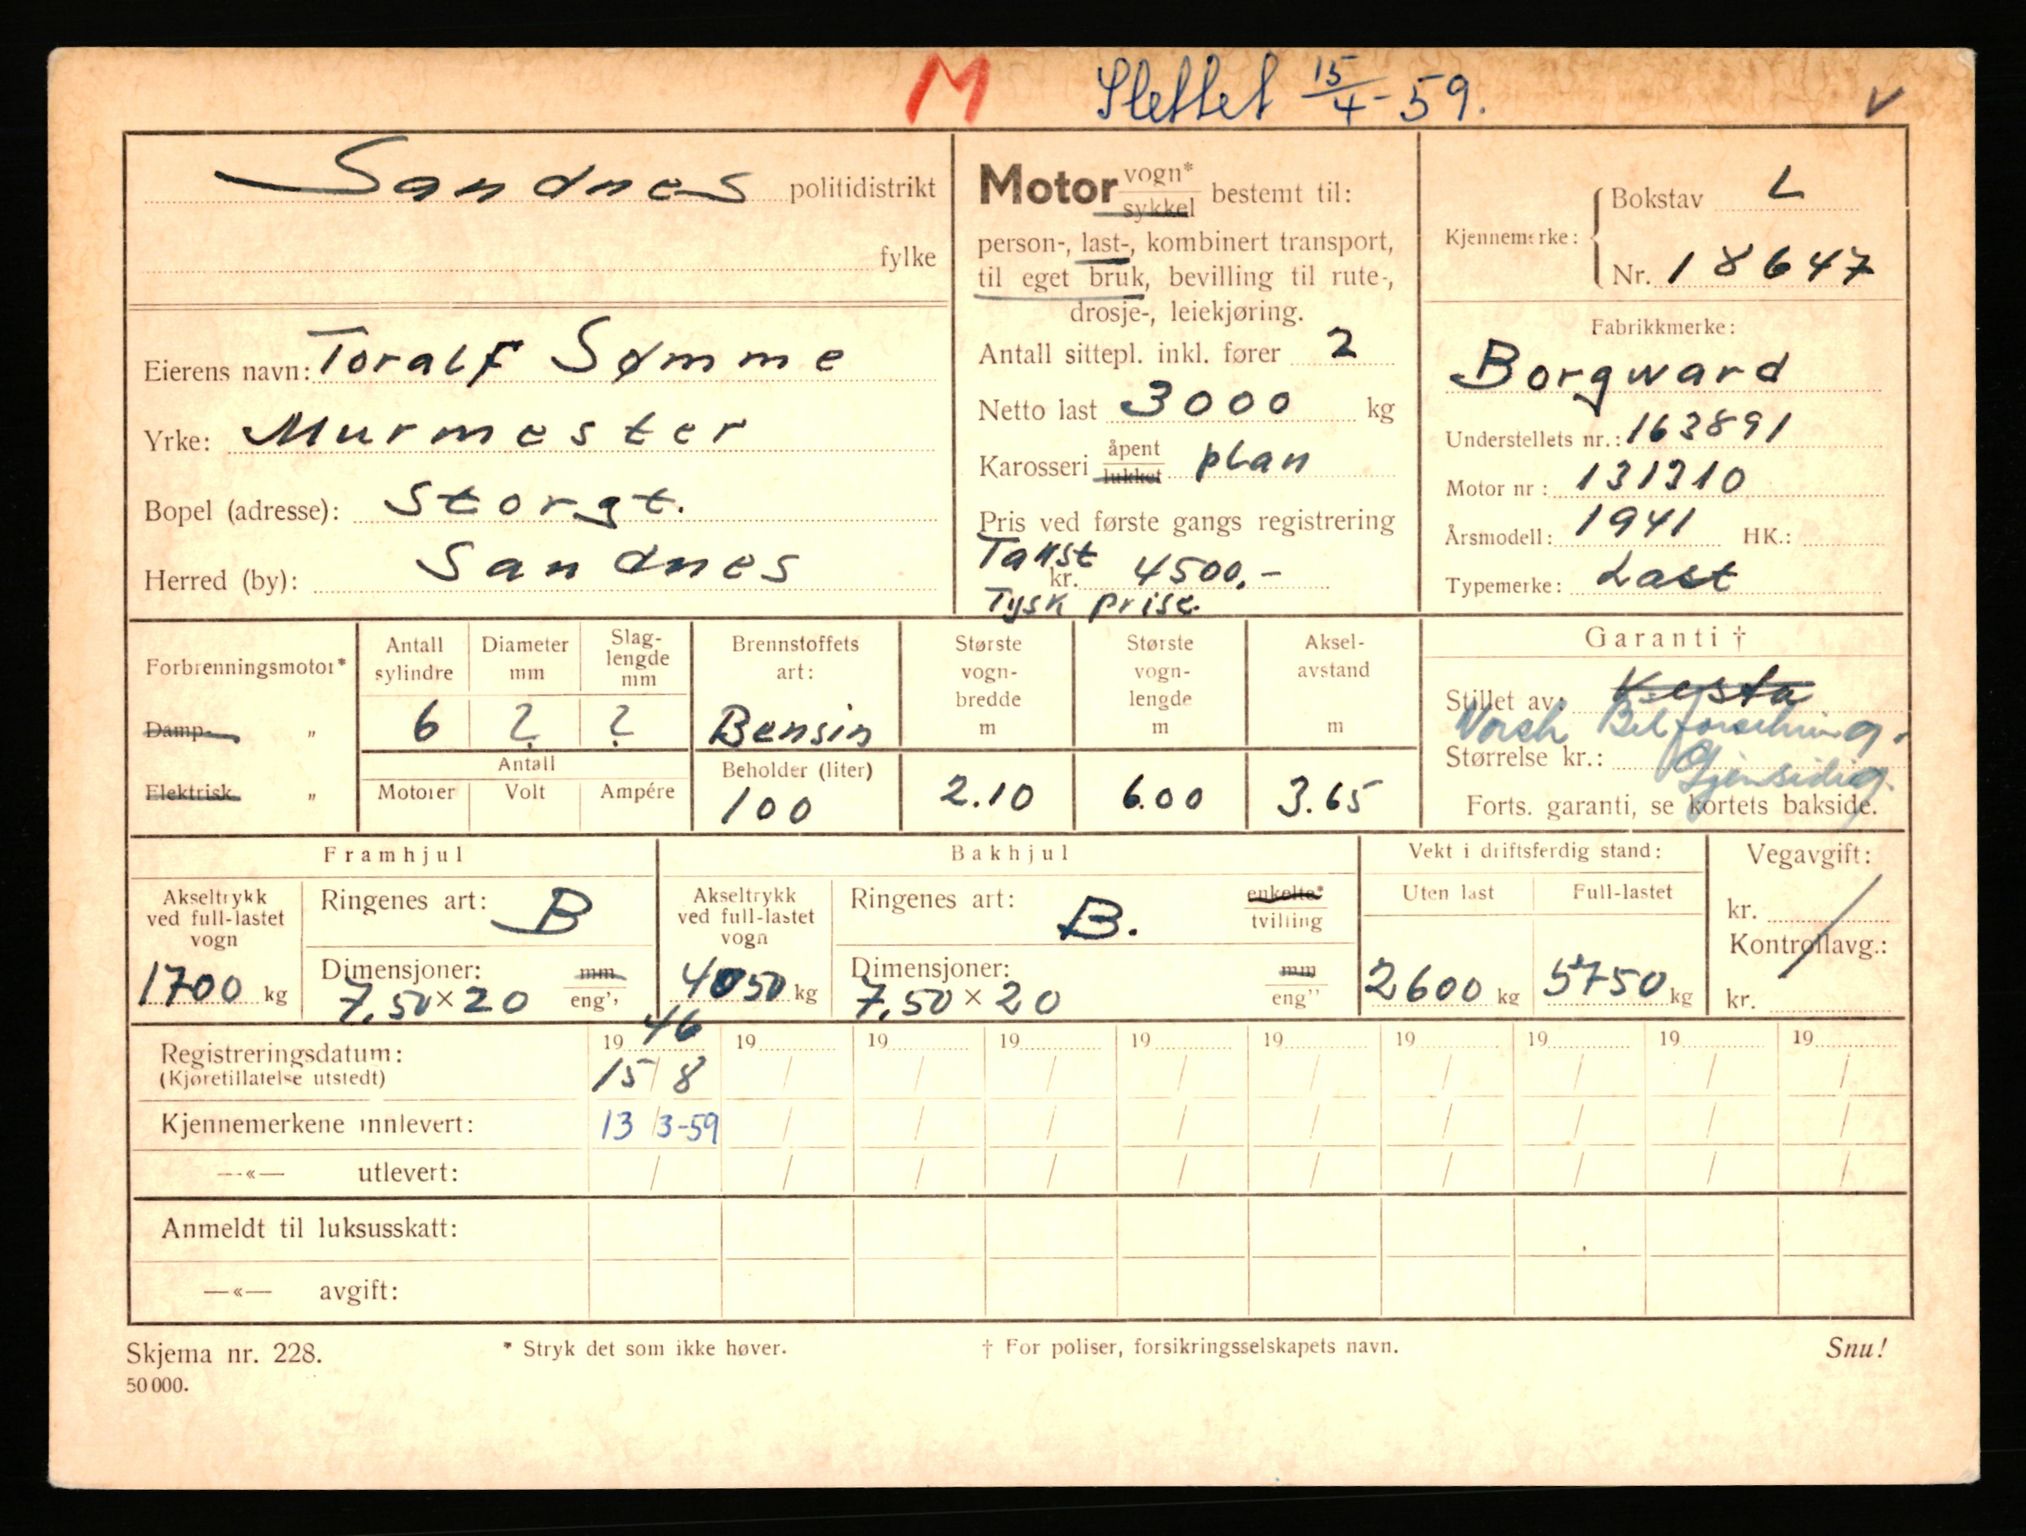 M Slettet 15/4-59. V
Sandnes politidistrikt
fylke
Eierens navn: Toralf Sømme
Yrke: Murmester
Bopel (adresse): Storgt.
Herred (by): Sandnes
Motor vogn* / sykkel bestemt til:
person-, last-, kombinert transport,
til eget bruk, bevilling til rute-,
drosje-, leiekjøring.
Antall sittepl. inkl. fører 2
Netto last 3000 kg
Karosseri åpent / lukket plan
Pris ved første gangs registrering
Takst
kr. 4500.-
Tysk prise.
Kjennemerke: { Bokstav L
Nr. 18647
Fabrikkmerke:
Borgward
Understellets nr.: 163891
Motor nr: 131310
Årsmodell: 1941 HK.:
Typemerke: Last
Forbrenningsmotor*
Damp- "
Elektrisk "
Antall sylindre
6
Diameter mm
?
Slag-lengde mm
?
Antall
Motorer Volt Ampére
Brennstoffets art:
Bensin
Beholder (liter)
100
Største vogn-bredde m
2.10
Største vogn-lengde m
6.00
Aksel-avstand m
3.65
Garanti †
Stillet av: Vesta
Norsk Bilforsikring.
Størrelse kr.: Gjensidig.
Forts. garanti, se kortets bakside.
Framhjul
Akseltrykk ved full-lastet vogn
1700 kg
Ringenes art: B
Dimensjoner: mm / eng''
7.50 × 20
Bakhjul
Akseltrykk ved full-lastet vogn
4050 kg
Ringenes art: B. enkelte* / tvilling
Dimensjoner: mm / eng''
7.50 × 20
Vekt i driftsferdig stand:
Uten last Full-lastet
2600 kg 5750 kg
Vegavgift:
kr.
Kontrollavg.:
kr.
Registreringsdatum: 19 46 19 19 19 19 19 19 19 19 19
(Kjøretillatelse utstedt) 15/8 / / / / / / / / /
Kjennemerkene innlevert: 13/3-59 / / / / / / / / /
—«— utlevert: / / / / / / / / / /
Anmeldt til luksusskatt:
—«— avgift:
Skjema nr. 228. * Stryk det som ikke høver. † For poliser, forsikringsselskapets navn. Snu!
50 000.